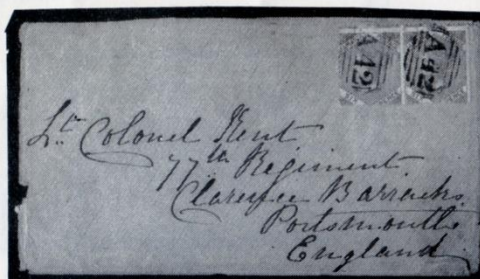 A 12 A 12
Lt. Colonel Kent
77th Regiment
Clarence Barracks
Portsmouth
England